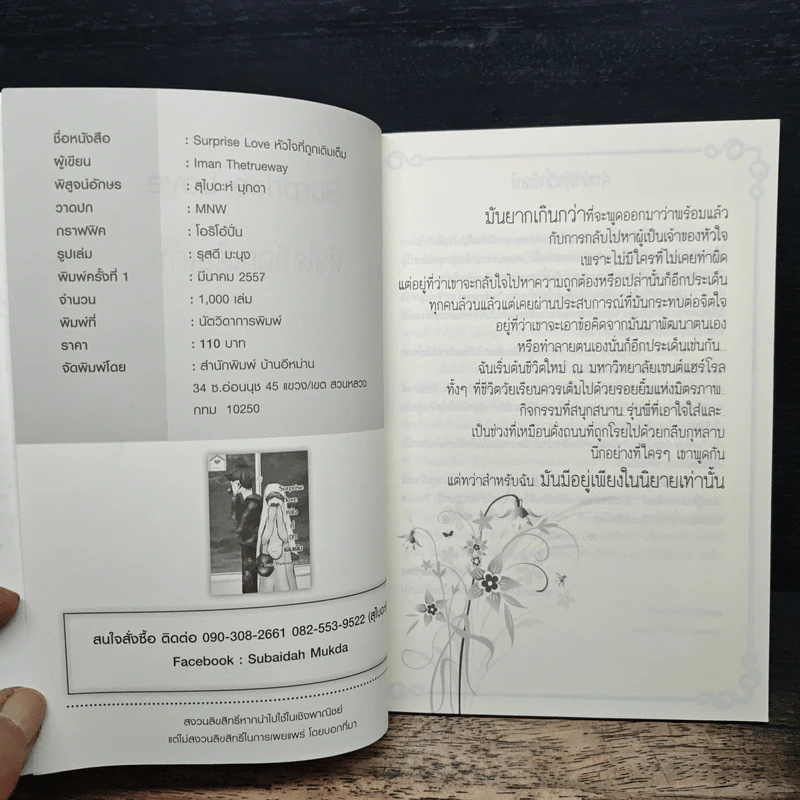 ชื่อหนังสือ : Surprise Love หัวใจที่ถูกเติมเต็ม
ผู้เขียน : Iman Thetrueway
พิสูจน์อักษร : สุไบดะห์ มุกดา
วาดปก : MNW
กราฟฟิค : โอริโอ้ปั่น
รูปเล่ม : รุสดี มะนุง
พิมพ์ครั้งที่ 1 : มีนาคม 2557
จำนวน : 1,000 เล่ม
พิมพ์ที่ : นัตวิดาการพิมพ์
ราคา : 110 บาท
จัดพิมพ์โดย : สำนักพิมพ์ บ้านอีหม่าน
34 ซ.อ่อนนุช 45 แขวง/เขต สวนหลวง
กทม 10250
Surprise
love
สนใจสั่งซื้อ ติดต่อ 090-308-2661 082-553-9522
Facebook : Subaidah Mukda
สงวนลิขสิทธิ์หากนำไปใช้ในเชิงพาณิชย์
แต่ไม่สงวนลิขสิทธิ์ในการเผยแพร่ โดยบอกที่มา
มันยากเกินกว่าที่จะพูดออกมาว่าพร้อมแล้ว
กับการกลับไปหาผู้เป็นเจ้าของหัวใจ
เพราะไม่มีใครที่ไม่เคยทำผิด
แต่อยู่ที่ว่าเขาจะกลับใจไปหาความถูกต้องหรือเปล่านั้นก็อีกประเด็น
ทุกคนล้วนแล้วแต่เคยผ่านประสบการณ์ที่มันกระทบต่อจิตใจ
อยู่ที่ว่าเขาจะเอาข้อคิดจากมันมาพัฒนาตนเอง
หรือทำลายตนเองนั่นก็อีกประเด็นเช่นกัน
ฉันเริ่มต้นชีวิตใหม่ ณ มหาวิทยาลัยเซนต์แฮร์โรล
ทั้งๆ ที่ชีวิตวัยเรียนควรเต็มไปด้วยรอยยิ้มแห่งมิตรภาพ
กิจกรรมที่สนุกสนาน รุ่นพี่ที่เอาใจใส่และ
เป็นช่วงที่เหมือนดั่งถนนที่ถูกโรยไปด้วยกลีบกุหลาบ
นึกอย่างที่ใครๆ เขาพูดกัน
แต่ทว่าสำหรับฉัน มันมีอยู่เพียงในนิยายเท่านั้น